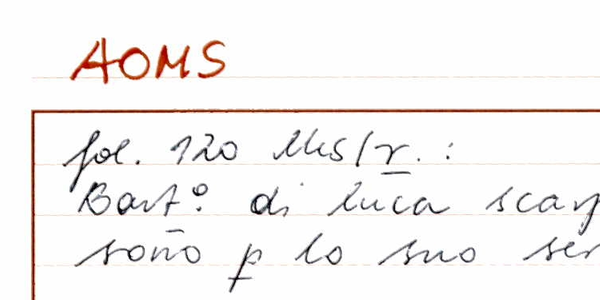 AOMS
fol. 120 Ms/r. :
Bart.º di luca scar
soño p lo suo ser